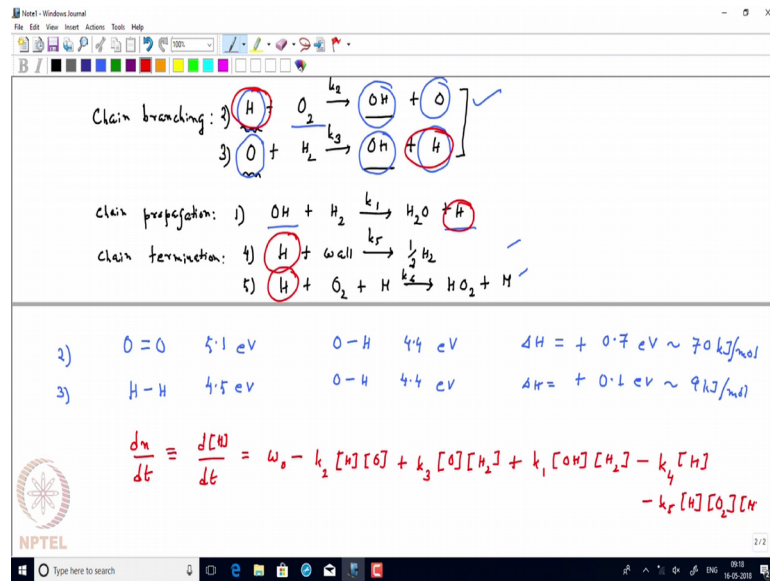 Note1 - Windows Journal
File Edit View Insert Actions Tools Help
100%
B I
Chain branching: 2) H + O₂ —k₂→ OH + O
3) O + H₂ —k₃→ OH + H
Chain propagation: 1) OH + H₂ —k₁→ H₂O + H
Chain termination: 4) H + wall —k₅→ ½ H₂
5) H + O₂ + M —k₄→ HO₂ + M
2) O=O 5.1 eV O-H 4.4 eV ΔH = + 0.7 eV ~ 70 kJ/mol
3) H-H 4.5 eV O-H 4.4 eV ΔH = + 0.1 eV ~ 9 kJ/mol
dn/dt ≡ d[H]/dt = ω₀ - k₂[H][O] + k₃[O][H₂] + k₁[OH][H₂] - k₄[H]
- k₅[H][O₂][M
NPTEL
2/2
Type here to search
ENG
09:18
16-05-2018